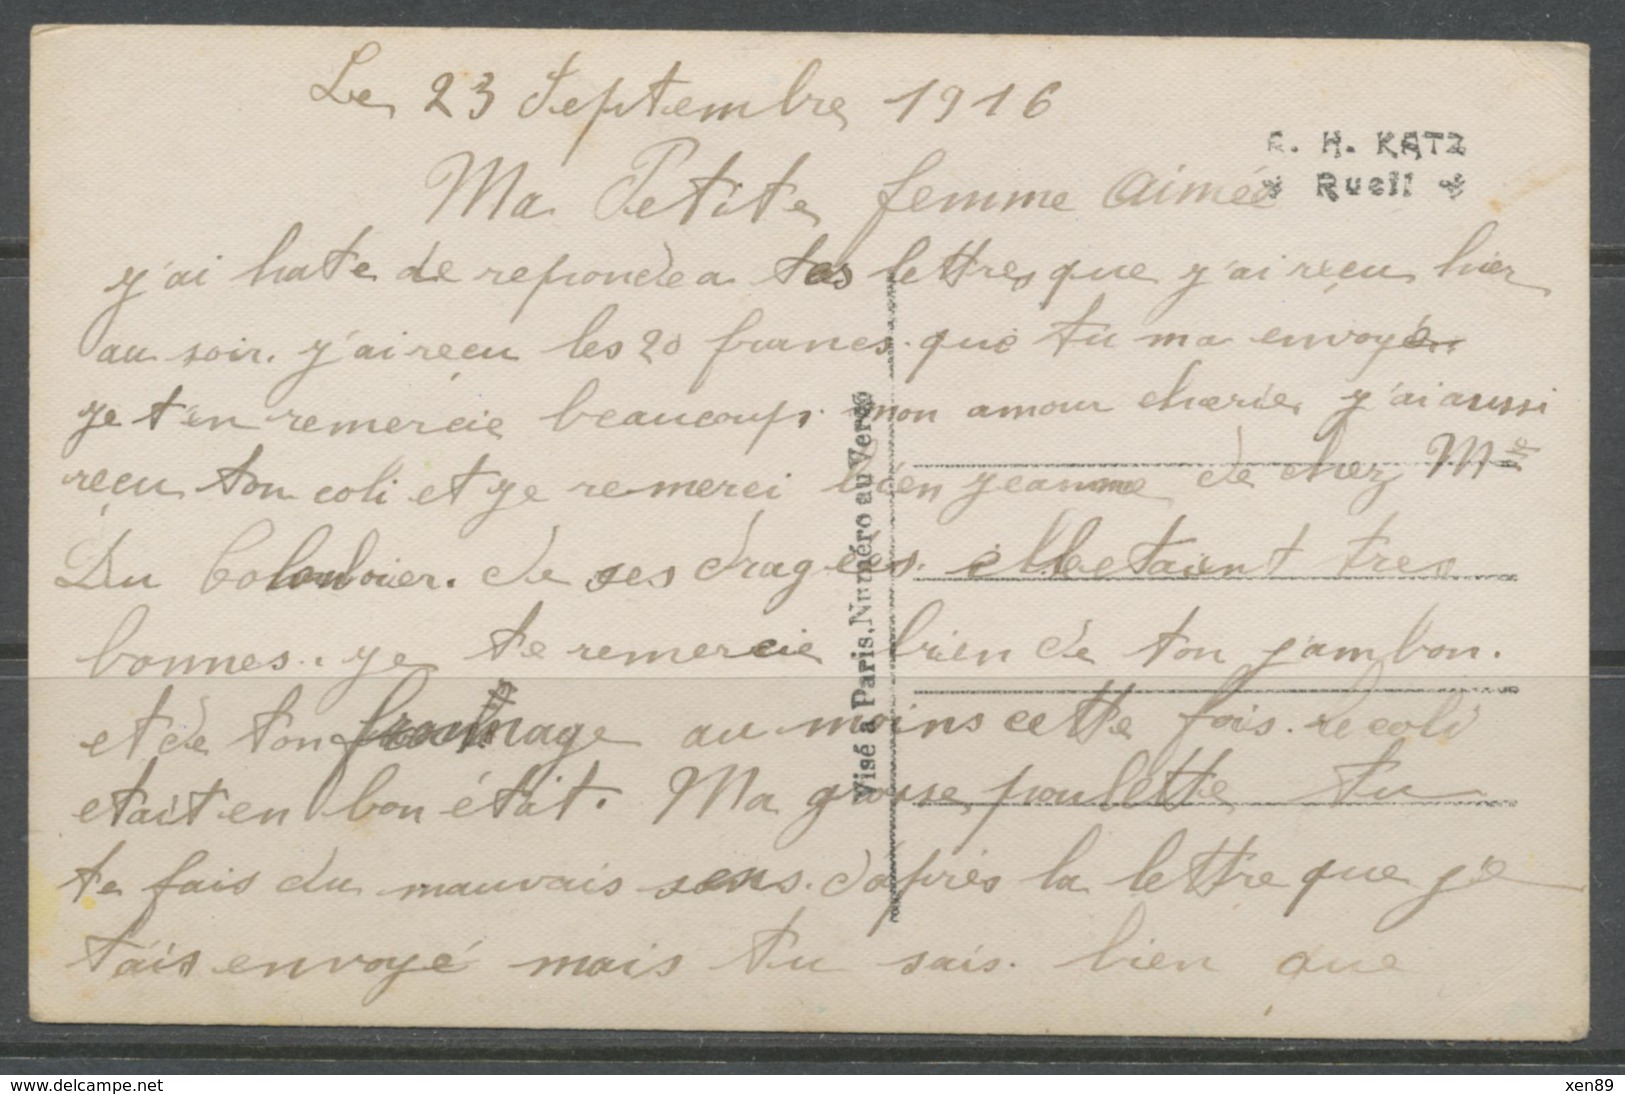 Le 23 Septembre 1916
A. H. KATZ
Rueil
Ma Petite femme aimée
y'ai hate de reponde a tes lettres que y'ai reçu hier
au soir. y'ai reçu les 20 francs. que tu ma envoyé
ye t'en remercie beaucoup. mon amour cherie, y'ai aussi
reçu ton coli et ye remerci bien yeanne de chez Mme
Du de ses dragées. elle etaient tres
bonnes. ye te remercie bien de ton yambon.
et de ton fromage au moins cette fois. le coli
etait en bon état. Ma grosse poulette tu
te fais du mauvais sens. d'après la lettre que ye
tais envoyé mais tu sais. bien que
Visé à Paris, Numéro au Verso
xen89
www.delcampe.net